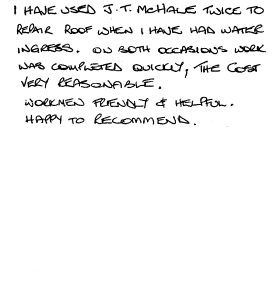 I HAVE USED J.T. McHALE TWICE TO
REPAIR ROOF WHEN I HAVE HAD WATER
INGRESS. ON BOTH OCCASIONS WORK
WAS COMPLETED QUICKLY, THE COST
VERY REASONABLE.
WORKMEN FRIENDLY & HELPFUL.
HAPPY TO RECOMMEND.